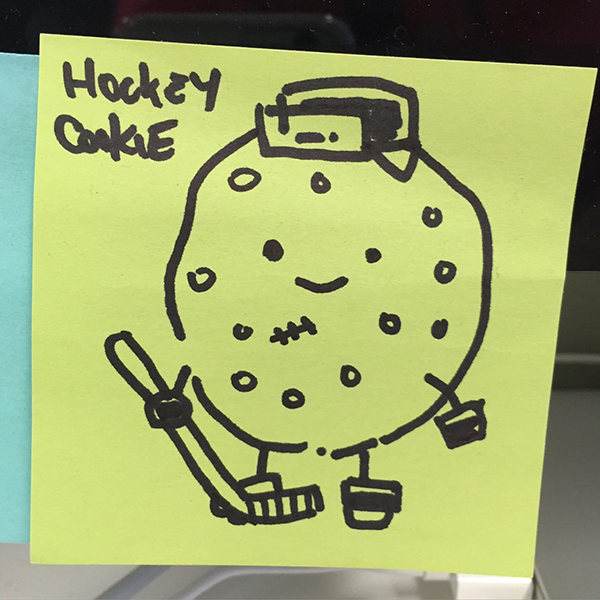 HockEy
CookiE